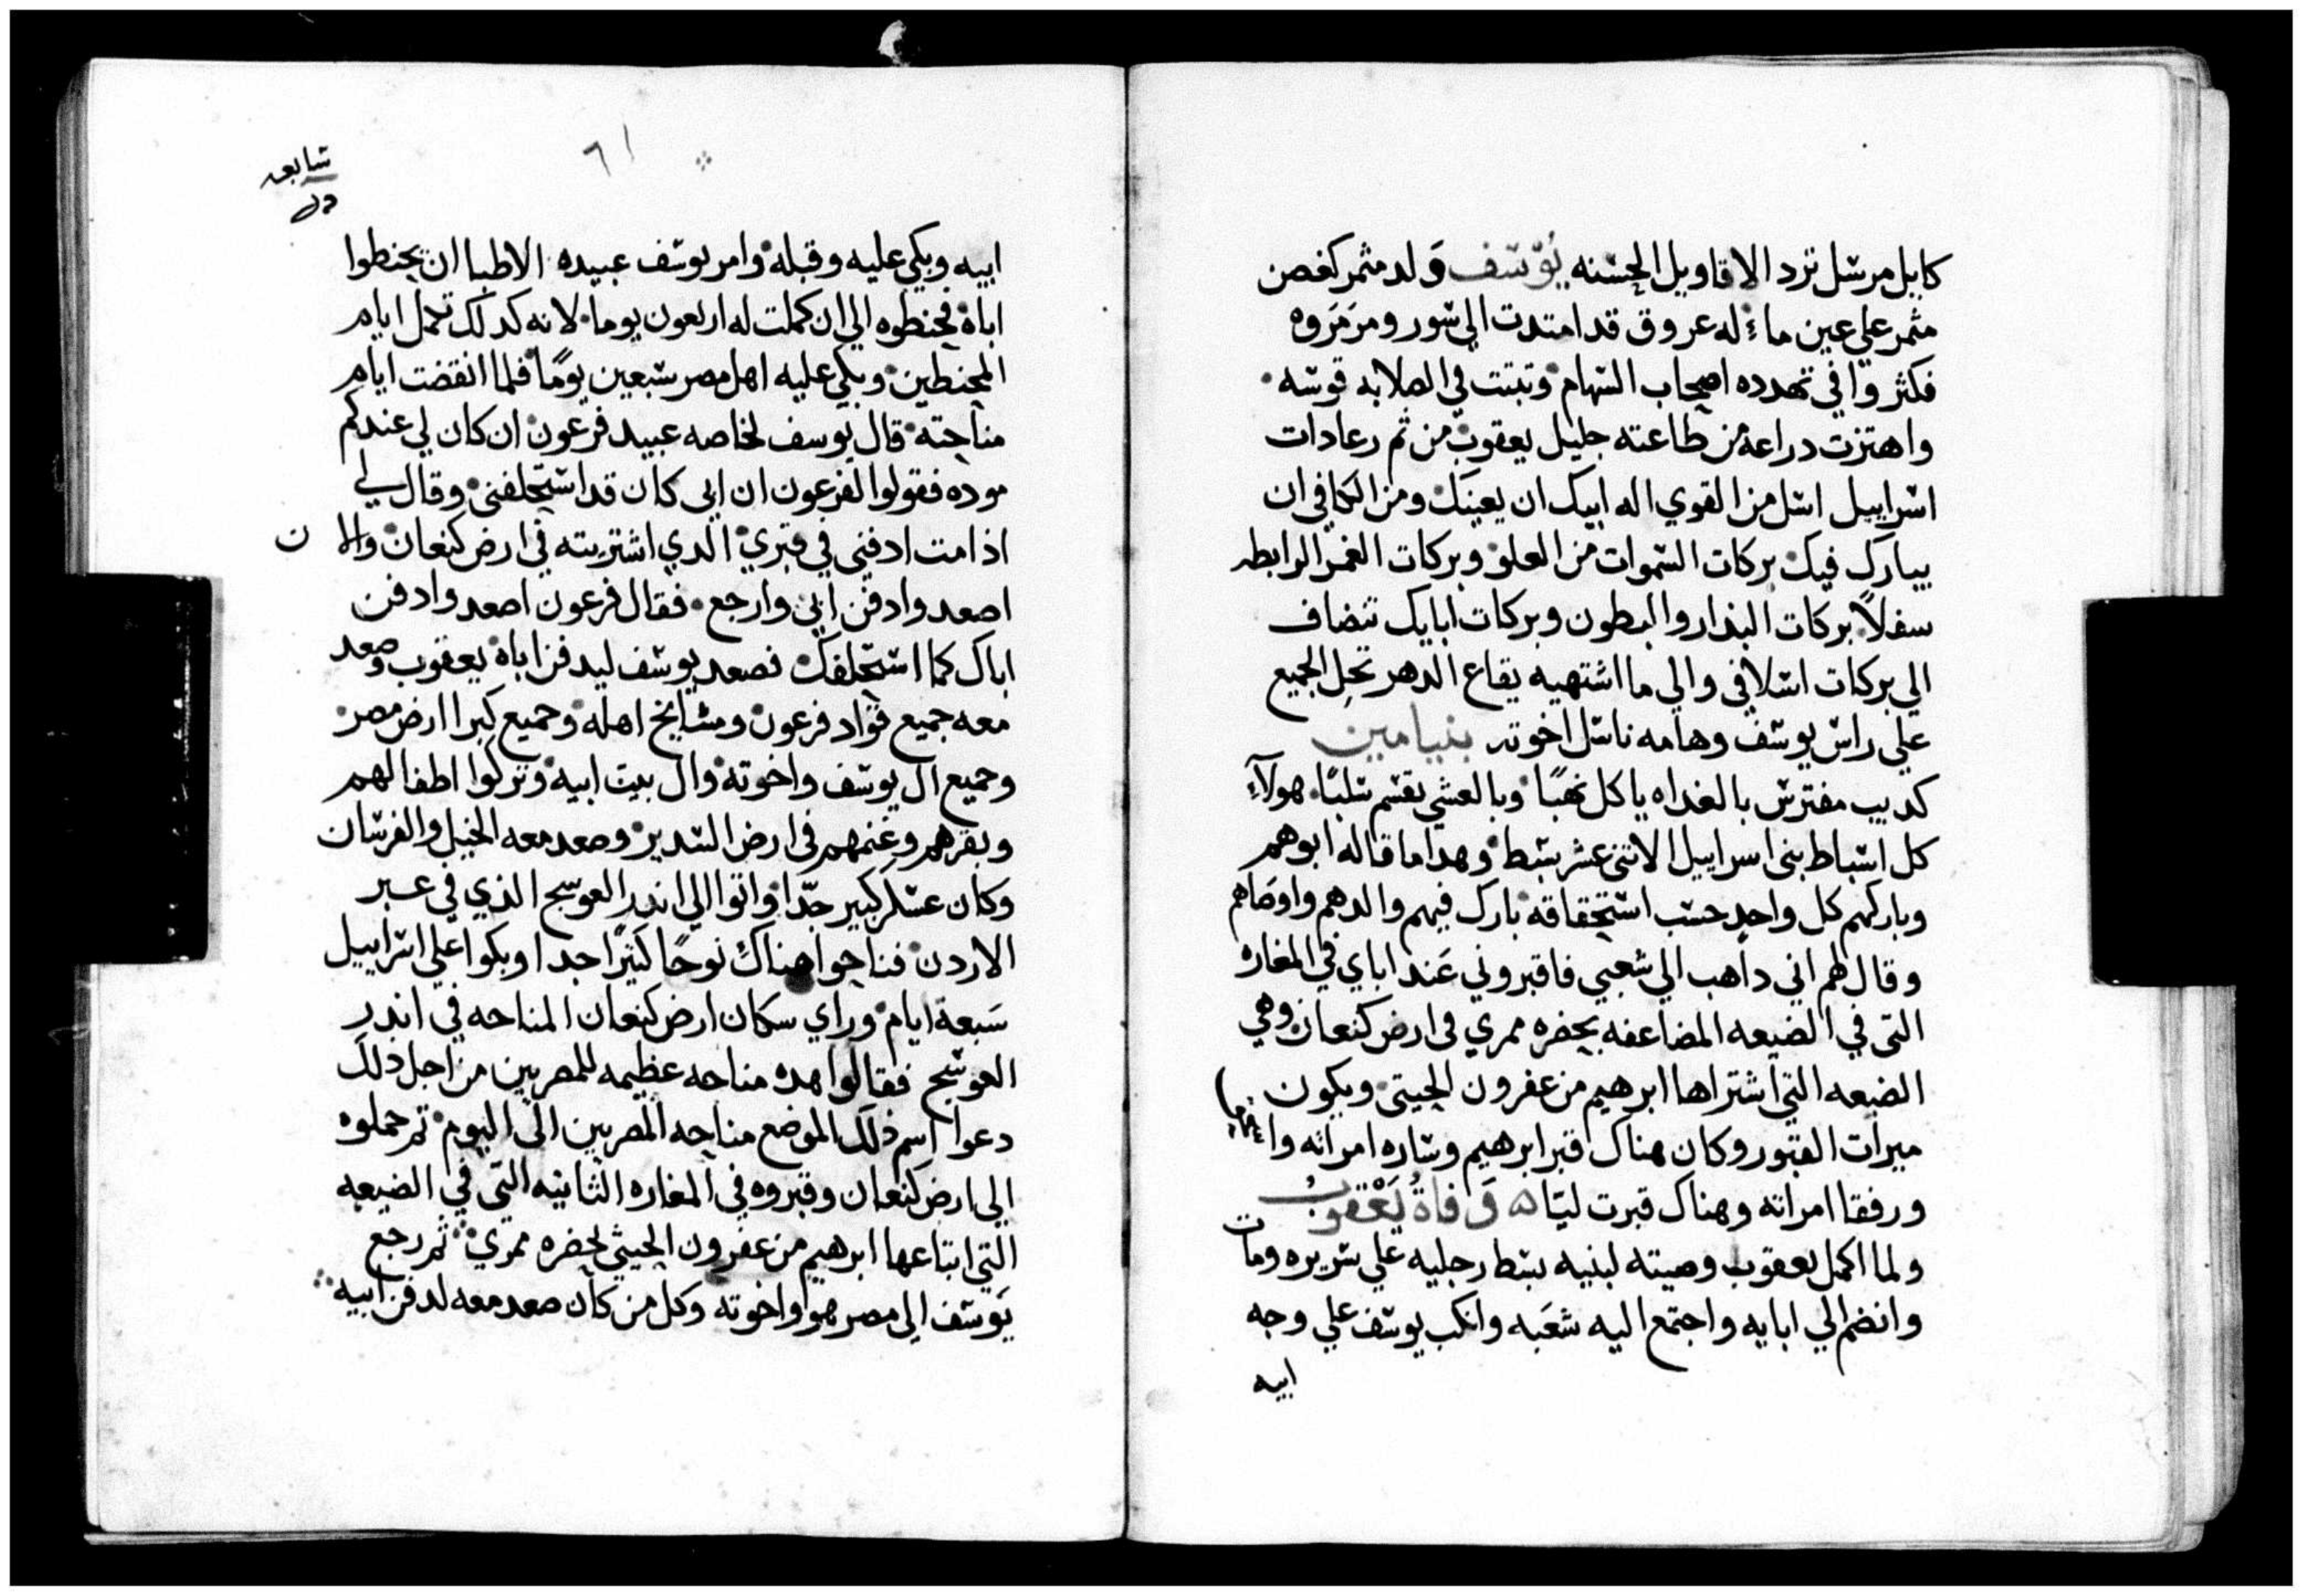 كايل مرسل ترد الاقاويل الحسنه يوسف ولد مثمر كغصن
مثمر علي عين ماء له عروق قد امتدت الي سور ومرمروه
فكثروا في تهدده اصحاب السهام وتبتت في الصلابه قوسه
واهتزت دراعه من طاعته جليل يعقوب من ثم رعادات
اسراييل اسل من القوي اله ابيك ان يعينك ومن الكافي ان
يبارك فيك بركات السموات من العلو وبركات الغمر الرابطه
سفلاً بركات البدار والبطون وبركات ابايك تنضاف
الي بركات اسلافي والي ما اشتهيه يقاع الدهر تحل الجميع
علي راس يوسف وهامه ناسل اخوته بنيامين
كديب مفترس بالغداه ياكل نهبًا وبالعشي يقسم سلبًا هولآء
كل اسباط بني اسراييل الاتني عشر بسط وهدا ما قاله ابوهم
وباركهم كل واحد حسب استحقاقه بارك فيهم والدهم واوصاهم
وقال لهم اني داهب الي شعبي فاقبروني عند اباي في المغاره
التي في الضيعه المضاعفه بحضره ممري في ارض كنعان وهي
الضيعه التي اشتراها ابرهيم من عفرون الحيتي ويكون
ميرات القبور وكان هناك قبر ابرهيم وساره امراته
ورفقا امراته وهناك قبرت ليا وفاة يعقوب
ولما اكمل يعقوب وصيته لبنيه بسط رجليه علي سريره ومات
وانضم الي ابايه واجتمع اليه شعبه وانكب يوسف علي وجه
ابيه
سابعه
٦١
ابيه وبكي عليه وقبله وامر يوسف عبيده الاطبا ان يحنطوا
اباه فحنطوه الي ان كملت له اربعون يوما لانه كدلك تكمل ايام
المحنطين وبكي عليه اهل مصر سبعين يومًا فلما انقضت ايام
مناحته قال يوسف لخاصه عبيد فرعون ان كان لي عندكم
موده فقولوا لفرعون ان ابي كان قد استحلفني وقال لي
ادا مت ادفني في قبري الدي اشتريته في ارض كنعان والان
اصعد وادفن ابي وارجع فقال فرعون اصعد وادفن
اباك كما استحلفك فصعد يوسف ليدفن اباه يعقوب وصعد
معه جميع قواد فرعون ومشايخ اهله وجميع كبرا ارض مصر
وجميع ال يوسف واخوته وال بيت ابيه وتركوا اطفالهم
وبقرهم وغنمهم في ارض السدير وصعد معه الخيل والفرسان
وكان عسكر كبير جدّا واتوا الي اندر العوسج الذي في عبر
الاردن فناحوا هناك نوحًا كثيرًا جدا وبكوا علي اسراييل
سبعة ايام وراي سكان ارض كنعان المناحه في اندر
العوسج فقالوا هده مناحه عظيمه للمصريين من اجل دلك
دعوا اسم ذلك الموضع مناحه المصريين الي اليوم تم حملوه
الي ارض كنعان وقبروه في المغاره الثانيه التي في الضيعه
التي ابتاعها ابرهيم من عفرون الحيثي بحضره ممري ثم رجع
يوسف الي مصر هو واخوته وكل من كان صعد معه لدفن ابيه